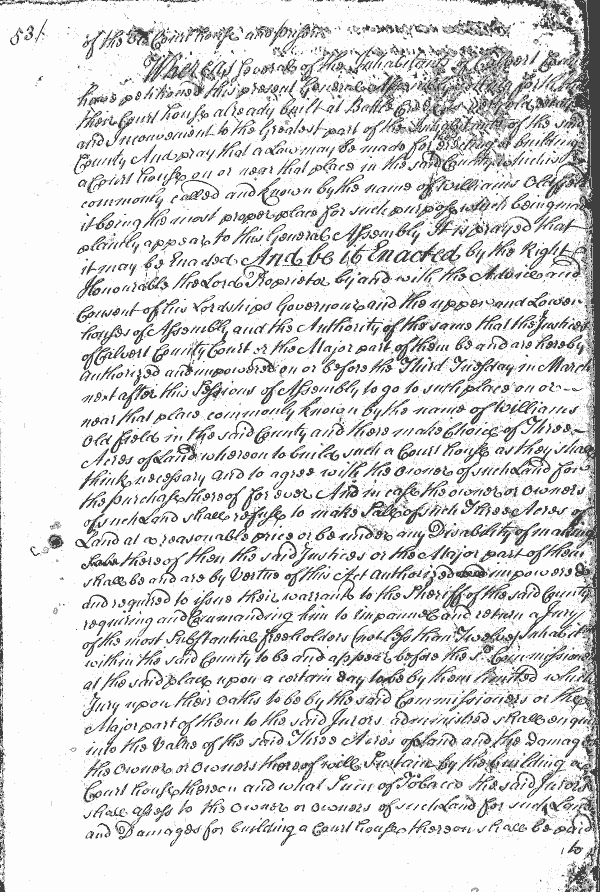 53/
of the sd Court house and prison
Whereas several of the Inhabitants of Calvert County
have petitioned this present General Assembly for
their Court house already built at Battle Creek is
and Inconvenient to the Greatest part of the Inhabitants of the said
County And pray that a Law may be made for Erecting & building
a Court house on or near that place in the said County which is
commonly called and known by the name of Williams Old field
it being the most proper place for such purpose which being made
plainly appear to this General Assembly It is prayed that
it may be Enacted And be it Enacted by the Right
Honourable the Lord Proprietor by and with the Advice and
Consent of his Lordships Governour and the upper and Lower
houses of Assembly and the Authority of the same that the Justices
of Calvert County Court or the Major part of them be and are hereby
Authorized and impowered on or before the Third Tuesday in March
next after this Sessions of Assembly to go to such place on or
near that place commonly known by the name of Williams
Old field in the said County and there make Choice of Three
Acres of Land whereon to build such a Court house as they shall
think necessary and to agree with the owner of such Land for
the purchase thereof for ever And in case the owner or owners
of such Land shall refuse to make Sale of such Three Acres of
Land at a reasonable price or be under any Disability of making
Sale thereof then the said Justices or the Major part of them
shall be and are by Vertue of this Act Authorized and impowered
and required to issue their warrant to the Sheriff of the said County
requiring and Commanding him to impannel and return a Jury
of the most Substantial freeholders (not less than Twelve) Inhabitants
within the said County to be and appear before the sd Commissioners
at the said place upon a certain day to be by them limited which
Jury upon their Oaths to be by the said Commissioners or the
Major part of them to the said Jurors administred shall enquire
into the Value of the said Three Acres of Land and the Damage
the owner or owners thereof will Sustain by the building a
Court house thereon and what Sum of Tobacco the said Jurors
shall assess to the owner or owners of such Land for such Land
and Damages for building a Court house thereon shall be paid
to